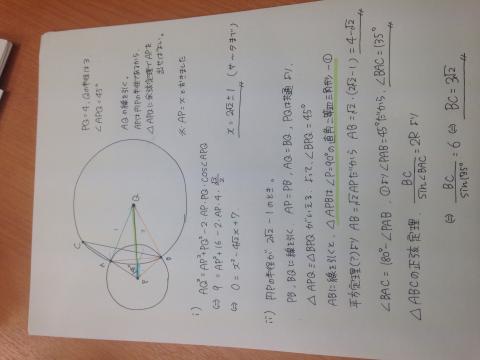 PQ=4, Qの半径は3
∠APQ=45°
AQの線を引く。
APは円Pの半径であるから、
△APQに余弦定理でAPを
出せばよい。
※ AP=xとおきました
C
Q
A
B
P
i) AQ²=AP²+PQ²-2・AP・PQ・cos∠APQ
⇔ 9 = AP²+16-2・AP・4・
⇔ 0 = x²-4√2x+7
x=2√2±1
ii) 円Pの半径が 2√2-1のとき。
PB, BQに線を引く AP=PB, AQ=BQ, PQは共通より、
△APQ≡△BPQがいえる。よって、∠BPQ=45°
ABに線を引くと、△APBは∠P=90°の直角二等辺三角形-①
平方定理(?)より AB=√2APだから AB=√2・(2√2-1)=4-√2
∠BAC=180°-∠PAB, ①より∠PAB=45°だから、∠BAC=135°
△ABCの正弦定理、 BC/sin∠BAC=2Rより
⇔ BC/sin135°=6 ⇔ BC=3√2